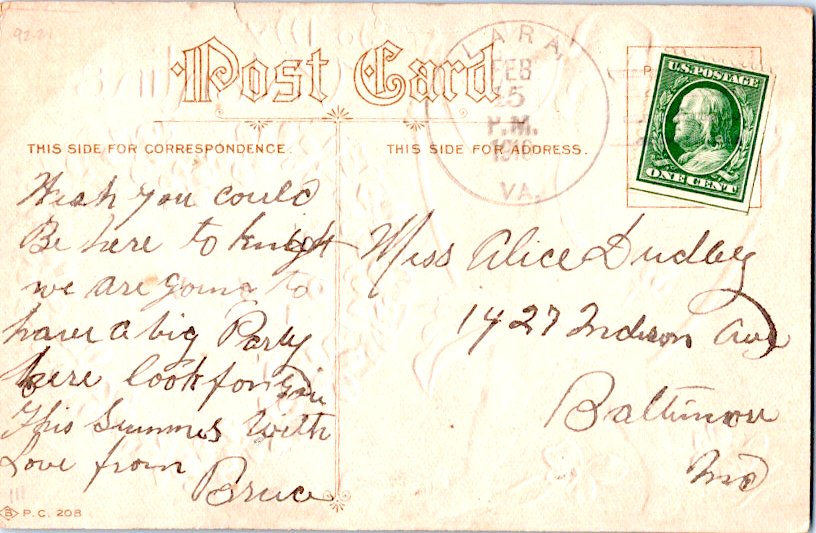 92-21
Post Card
LARA,
FEB
15
P.M.
1913
VA.
U.S. POSTAGE
ONE CENT
THIS SIDE FOR CORRESPONDENCE.
THIS SIDE FOR ADDRESS.
Wish you could
Be here to knight
we are going to
have a big Party
here look for you
This Summer With
Love from
Bruce
Miss Alice Dudley
1427 Ave
Baltimore
Md
111
B P.C. 208